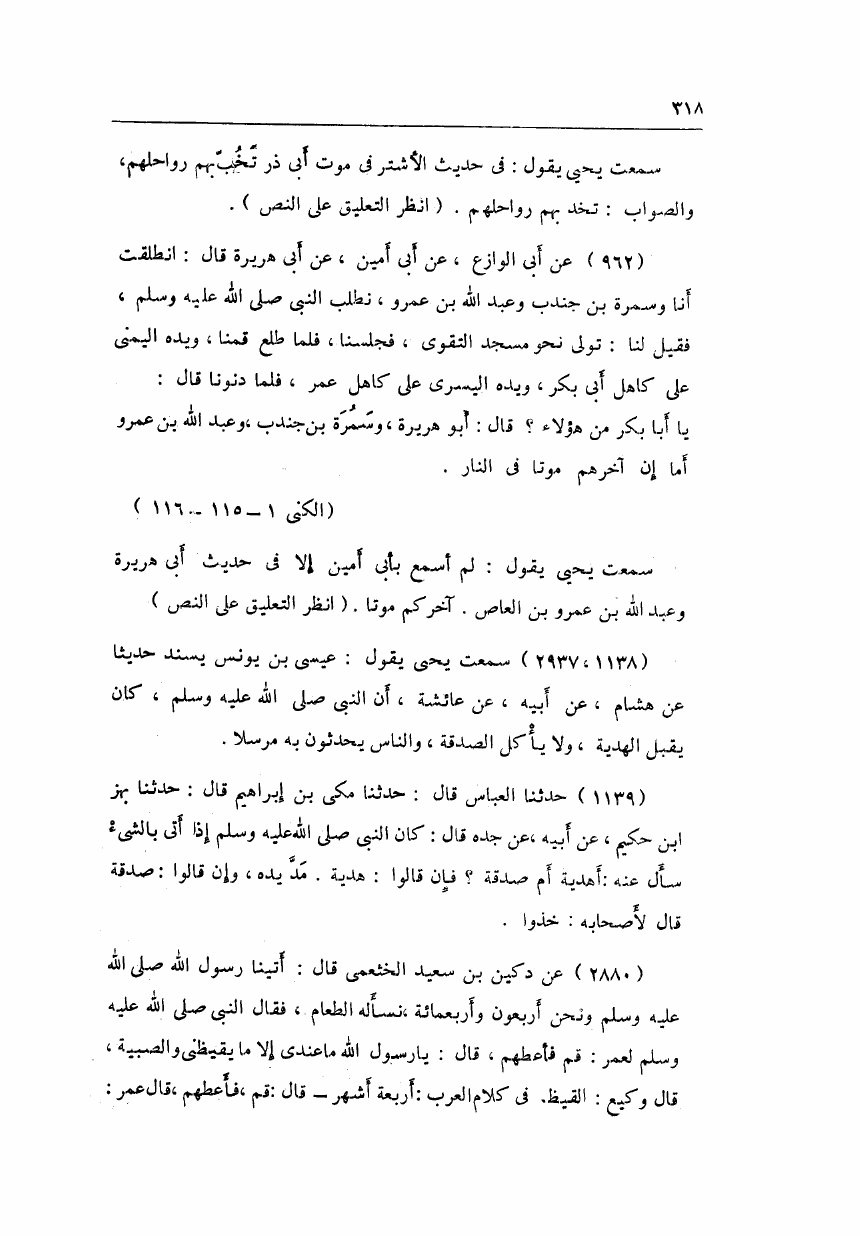 ٣١٨
سمعت يحيى يقول : فى حديث الأشتر فى موت أبى ذر تَخُبّ بهم رواحلهم،
والصواب : تخد بهم رواحلهم . ( انظر التعليق على النص ) .
( ٩٦٢ ) عن أبى الوازع ، عن أبى أمين ، عن أبى هريرة قال : انطلقت
أنا وسمرة بن جندب وعبد الله بن عمرو ، نطلب النبى صلى الله عليه وسلم ،
فقيل لنا : تولى نحو مسجد التقوى ، فجلسنا ، فلما طلع قمنا ، ويده اليمنى
على كاهل أبى بكر ، ويده اليسرى على كاهل عمر ، فلما دنونا قال :
يا أبا بكر من هؤلاء ؟ قال : أبو هريرة ، وسَمُرَة بن جندب ، وعبد الله بن عمرو
أما إن آخرهم موتا فى النار .
( الكنى ١ – ١١٥ – ١١٦ )
سمعت يحيى يقول : لم أسمع بأبى أمين إلا فى حديث أبى هريرة
وعبد الله بن عمرو بن العاص . آخركم موتا . ( انظر التعليق على النص )
( ١١٣٨ ، ٢٩٣٧ ) سمعت يحيى يقول : عيسى بن يونس يسند حديثا
عن هشام ، عن أبيه ، عن عائشة ، أن النبى صلى الله عليه وسلم ، كان
يقبل الهدية ، ولا يأكل الصدقة ، والناس يحدثون به مرسلا .
( ١١٣٩ ) حدثنا العباس قال : حدثنا مكى بن إبراهيم قال : حدثنا بهز
ابن حكيم ، عن أبيه ، عن جده قال : كان النبى صلى الله عليه وسلم إذا أتى بالشىء
سأل عنه : أهدية أم صدقة ؟ فإن قالوا : هدية . مَدَّ يده ، وإن قالوا : صدقة
قال لأصحابه : خذوا .
( ٢٨٨٠ ) عن دكين بن سعيد الخثعمى قال : أتينا رسول الله صلى الله
عليه وسلم ونحن أربعون وأربعمائة ،نسأله الطعام ، فقال النبى صلى الله عليه
وسلم لعمر : قم فأعطهم ، قال : يارسول الله ماعندى إلا ما يقيظنى والصبية ،
قال وكيع : القيظ. فى كلام العرب : أربعة أشهر – قال : قم ، فأعطهم ، قال عمر :